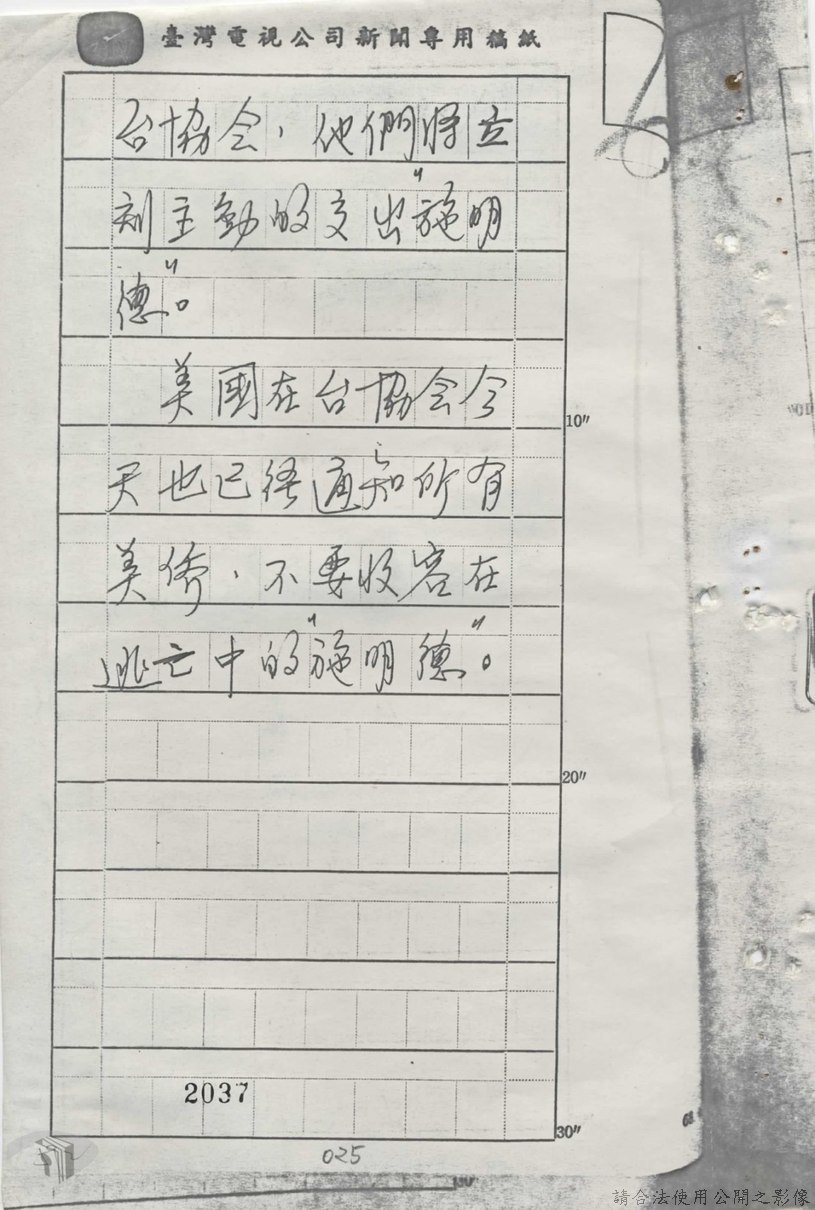 臺灣電視公司新聞專用稿紙
台協会，他們將立
刻主動的交出"施明
德"。
美國在台協会今
天也已经通知所有
美僑，不要收容在
10"
逃亡中的"施明德"。
20"
2037
30"
025
請合法使用公開之影像